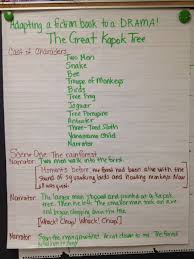 Adapting a fiction book to a DRAMA!
The Great Kapok Tree
Cast of Characters
Two Men
Snake
Bee
Troupe of Monkeys
Birds
Tree Frog
Jaguar
Tree Porcupine
Anteater
Three-Toed Sloth
Yanomamo Child
Narrator
Scene One: The rainforest
Narrator: Two men walk into the forest.
Moments before, the forest had been alive with the
sound of squawking birds and howling monkeys. Now
it was quiet.
Narrator: The larger man stopped and pointed to a Kapok
tree. Then he left. The smaller man took out an axe
and began chopping the tree.
[Whack! Chop! Whack! Chop!]
Narrator: